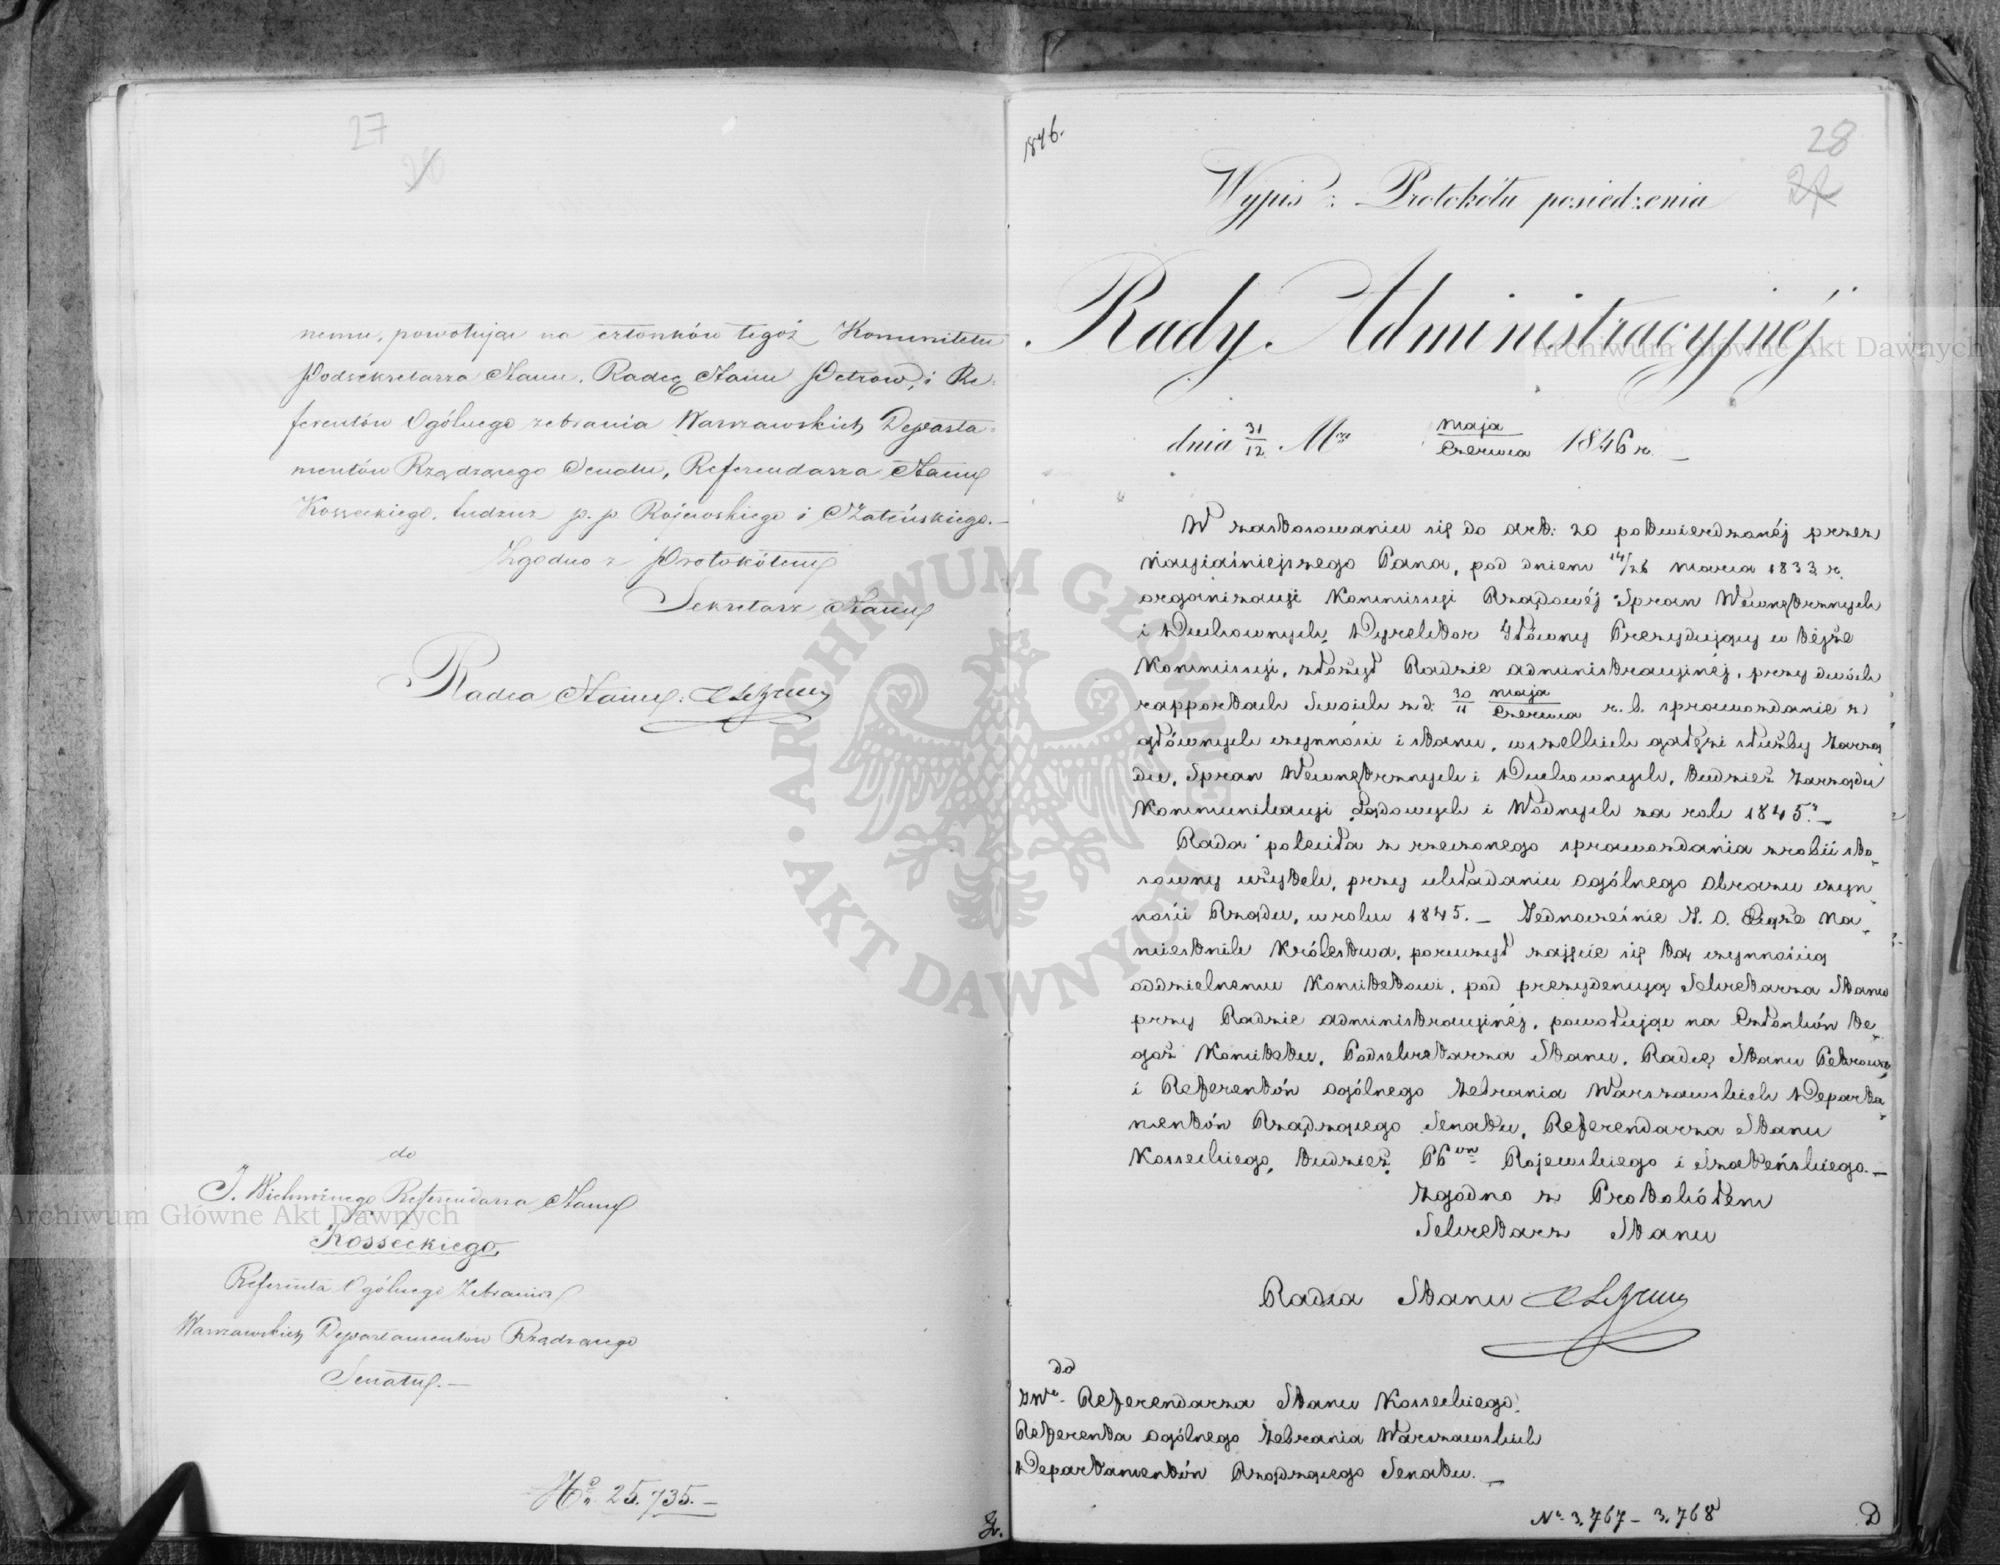 27
20
nemu, powołując na członków tegoż Kommitetu
Podsekretarza Stanu, Radcę Stanu Petrow, i Re-
ferentów Ogólnego zebrania Warszawskich Departa-
mentów Rządzącego Senatu, Referendarza Stanu
Kosseckiego, tudzież p. p. Rojewskiego i Szateńskiego.—
Zgodno z Protokółem
Sekretarz Stanu
Radca Stanu:
do
J. Wielmożnego Referendarza Stanu
Kosseckiego,
Referenta Ogólnego Zebrania
Warszawskich Departamentów Rządzącego
Senatu.—
No. 25.735.—
1846.
28
27
Wypis z Protokółu posiedzenia
Rady Administracyjnéj
dnia 31/12 Mca Maja/Czerwca 1846 r. —
W zastosowaniu się do art: 20 potwierdzonéj przez
Najjaśniejszego Pana, pod dniem 14/26 Marca 1833 r.
organizacyi Kommissyi Rządowéj Spraw Wewnętrznych
i Duchownych, Dyrektor Główny Prezydujący w téjże
Kommissyi, złożył Radzie administracyjnéj, przy dwóch
rapportach swoich z d. 30/11 Maja/Czerwca r. b. sprawozdanie z
głównych czynności i stanu, wszelkich gałęzi służby Zarzą
du, Spraw Wewnętrznych i Duchownych, tudzież Zarządu
Kommunikacyi Lądowych i Wodnych za rok 1845.—
Rada poleciła z rzeczonego sprawozdania zrobić sto-
sowny użytek, przy układaniu ogólnego obrazu czyn
ności Rządu, w roku 1845. — Jednocześnie J. O. Xiąże Na-
miestnik Królestwa, poruczył zajęcie się tą czynnością
oddzielnemu Komitetowi, pod prezydencyą Sekretarza Stanu
przy Radzie administracyjnéj, powołując na Członków te-
goż Komitetu, Podsekretarza Stanu, Radcę Stanu Petrowa
i Referentów ogólnego Zebrania Warszawskich Departa-
mentów Rządzącego Senatu, Referendarza Stanu
Kosseckiego, tudzież PPów Rojewskiego i Szateńskiego.—
Zgodno z Protokółem
Sekretarz Stanu
Radca Stanu
do
JWo. Referendarza Stanu Kosseckiego,
Referenta ogólnego Zebrania Warszawskich
Departamentów Rządzącego Senatu.—
No. 3,767 — 3,768
D
ARCHIWUM GŁÓWNE AKT DAWNYCH
Archiwum Główne Akt Dawnych
Archiwum Główne Akt Dawnych